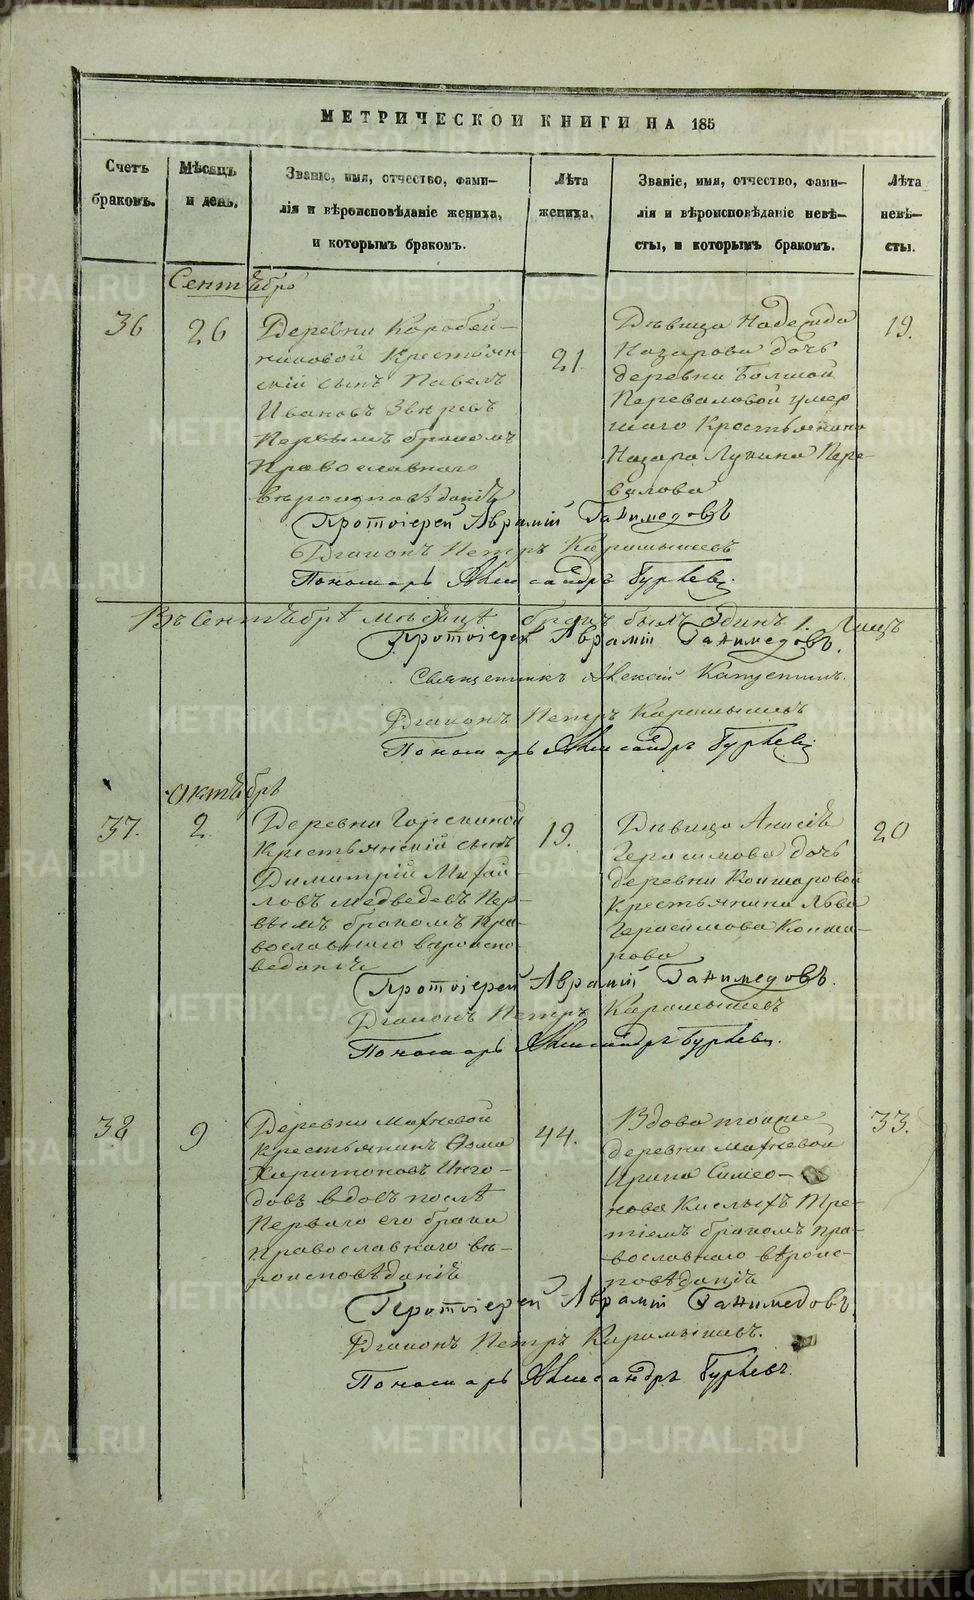 МЕТРИЧЕСКОЙ КНИГИ НА 185
Счетъ браковъ.
Мѣсяцъ и день.
Званіе, имя, отчество, фами-
лія и вѣроисповѣданіе жениха,
и которымъ бракомъ.
Лѣта
жениха.
Званіе, имя, отчество, фами-
лія и вѣроисповѣданіе невѣ-
сты, и которымъ бракомъ.
Лѣта
невѣ-
сты.
Сентябрь
36
26
Деревни Коробей-
никовой Крестьян-
скій сынъ Павелъ
Ивановъ Звѣревъ
Первымъ бракомъ
Православнаго
вѣроисповѣданія
21.
Дѣвица Надежда
Назарова дочь
деревни Болшой
Переваловой умер
шаго Крестьянина
Назара Лукина Пере-
валова
19.
Протоіерей Аврамій Ганимедовъ
Діаконъ Петръ Карамышевъ
Пономарь Александръ Гурьевъ
Въ Сентябрѣ мѣсяцѣ бракъ былъ одинъ 1.
Протоіерей Аврамій Ганимедовъ.
Священникъ Алексій Капустинъ.
Діаконъ Петръ Карамышевъ
Пономарь Александръ Гурьевъ
Октябрь
37.
2
Деревни Горскиной
Крестьянскій сынъ
Димитрій Михай-
ловъ Медведевъ Пер-
вымъ бракомъ Пра-
вославнаго вероиспо-
веданія
19.
Дѣвица Анисія
Герасимова дочь
деревни Кошкаровой
Крестьянина Льва
Герасимова Кошка-
рова
20
Протоіерей Аврамій Ганимедовъ.
Діаконъ Петръ Карамышевъ
Пономарь Александръ Гурьевъ.
38
9
Деревни Махневой
Крестьянинъ Фома
Харитоновъ
вдовъ послѣ
Перваго его брака
Православнаго вѣ-
роисповѣданія
44.
Вдова тойже
деревни Махневой
Ирина Симео-
нова Кислыхъ Тре-
тіемъ бракомъ пра-
вославнаго вѣроис-
повѣданія
33.
Протоіерей Аврамій Ганимедовъ
Діаконъ Петръ Карамышевъ.
Пономарь Александръ Гурьевъ.
METRIKI.GASO-URAL.RU